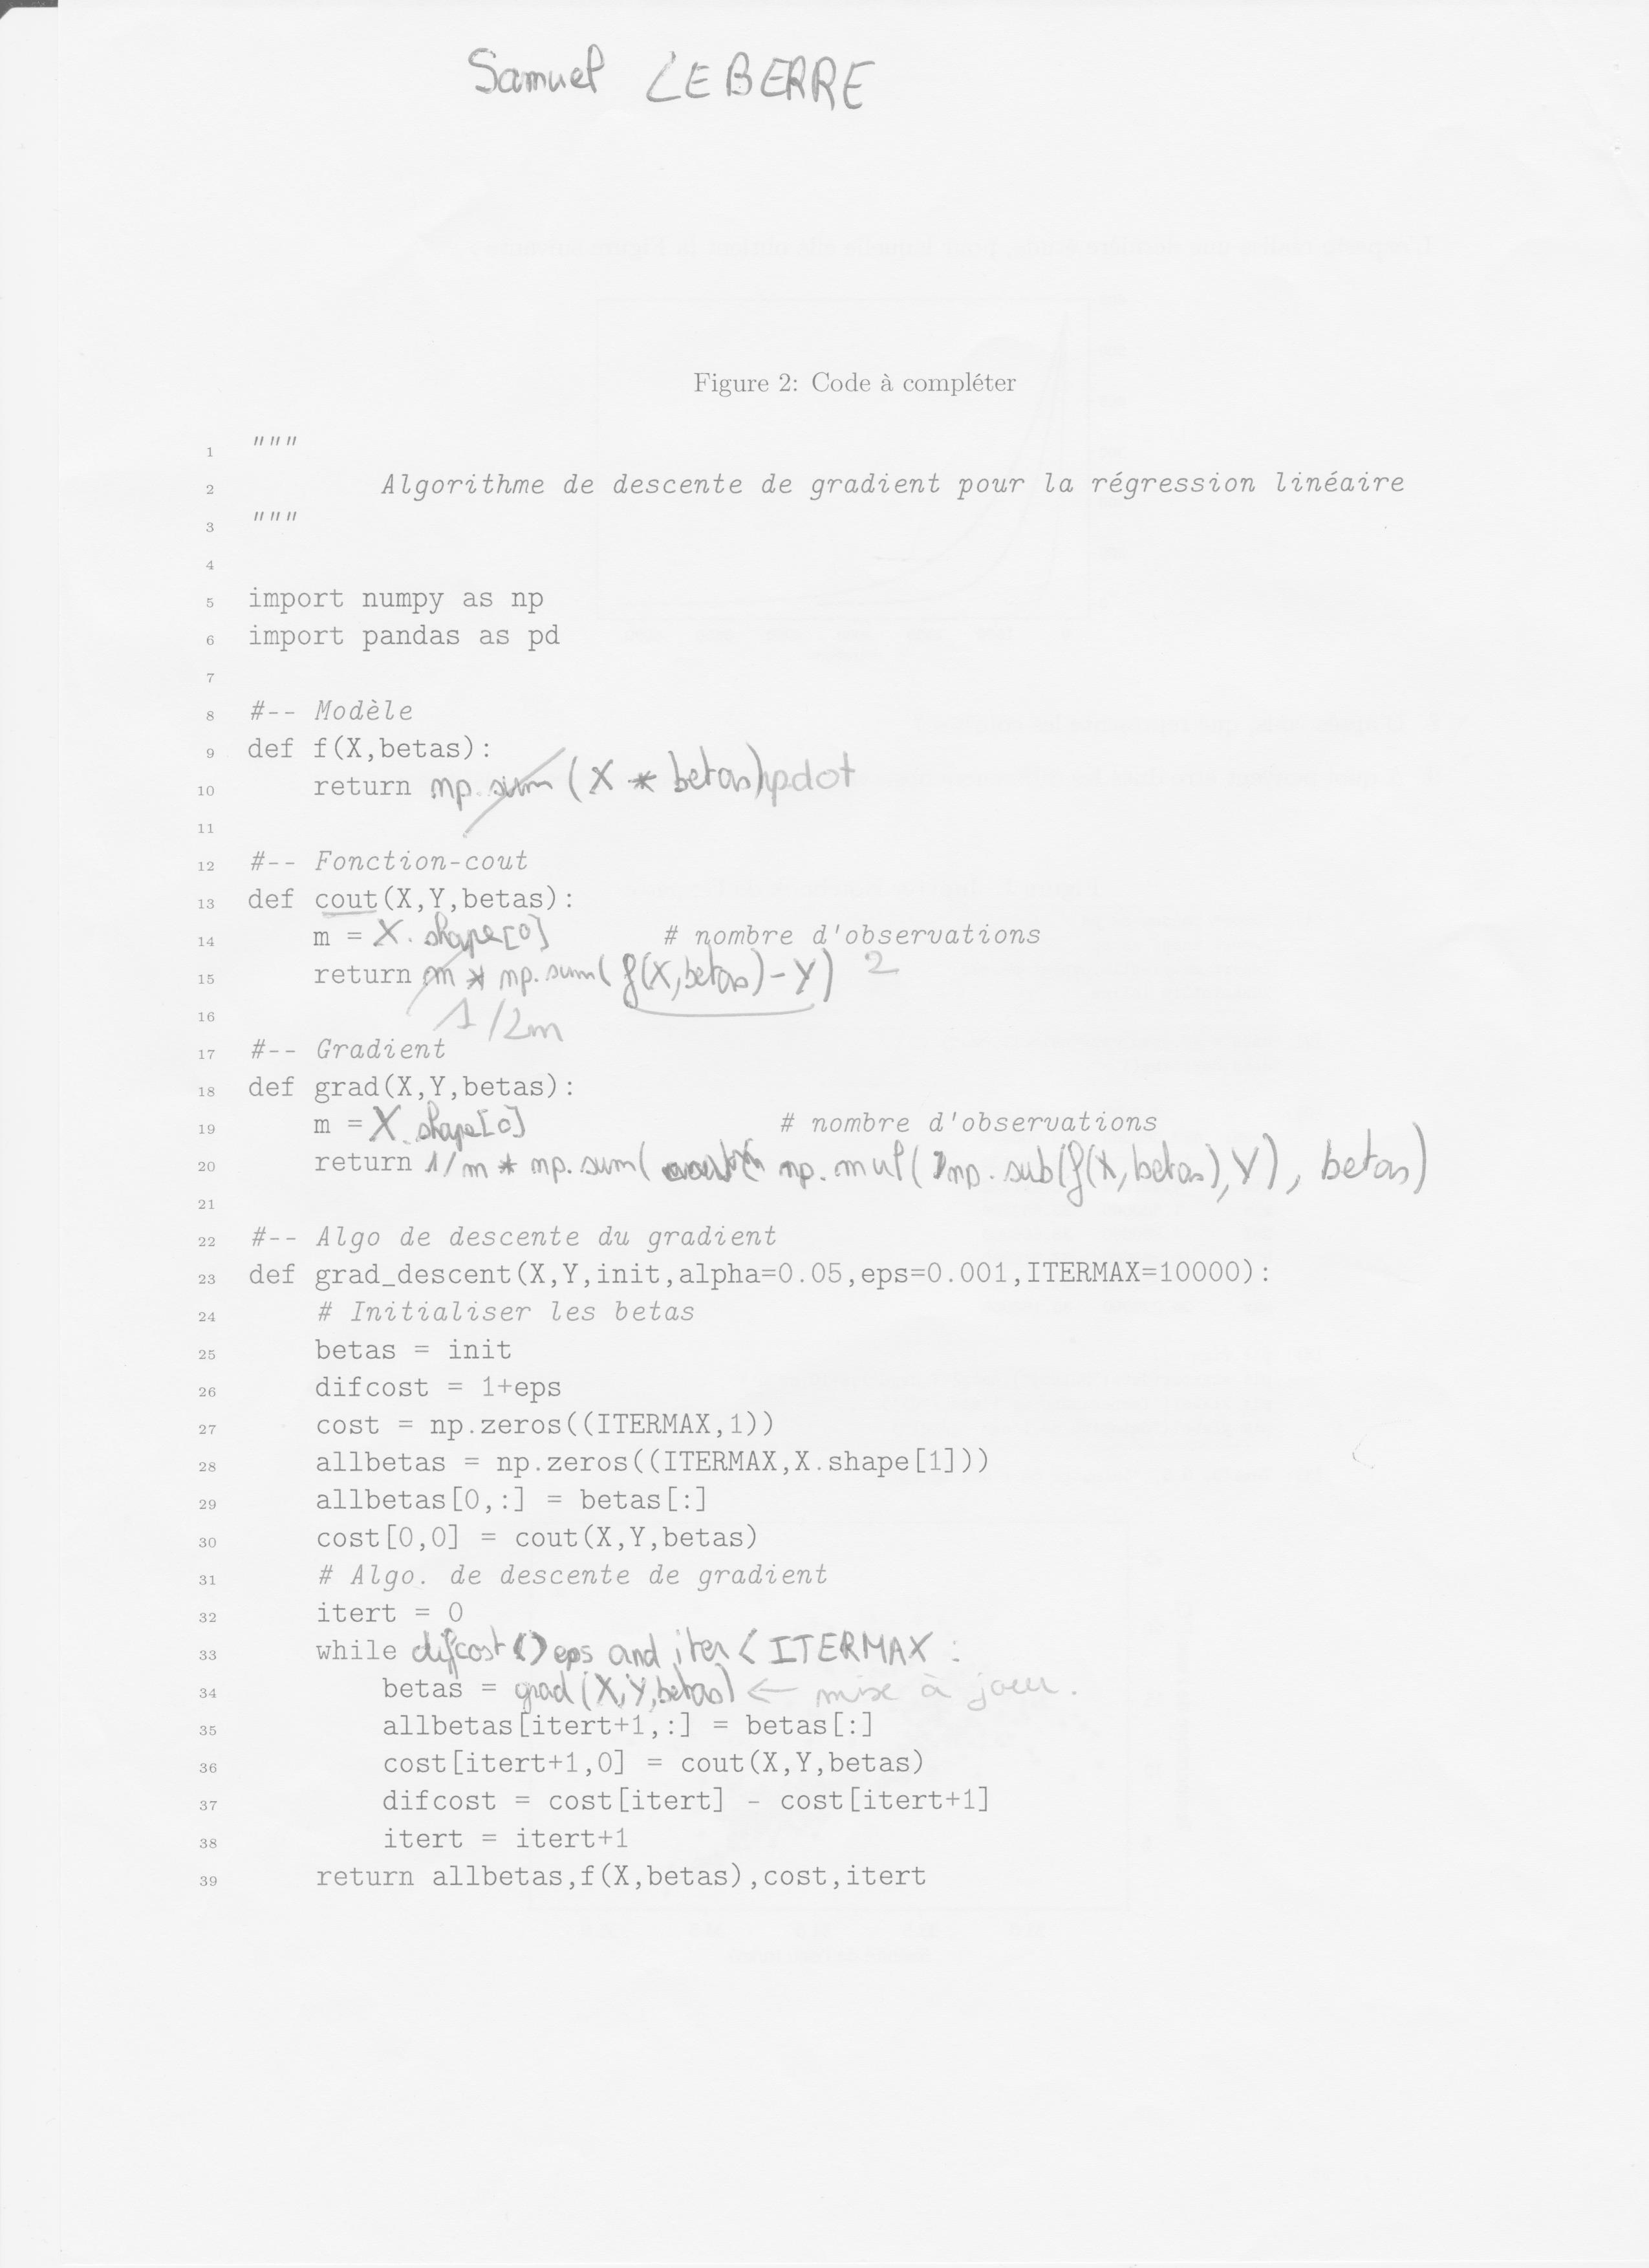 Samuel LEBERRE
Figure 2: Code à compléter
1 """
2 Algorithme de descente de gradient pour la régression linéaire
3 """
4
5 import numpy as np
6 import pandas as pd
7
8 #-- Modèle
9 def f(X,betas):
10 return np.sum (X * betas) npdot
11
12 #-- Fonction-cout
13 def cout(X,Y,betas):
14 m = X.shape[0] # nombre d'observations
15 return m * np.sum(f(X,betas)-Y) 2
16 1/2m
17 #-- Gradient
18 def grad(X,Y,betas):
19 m = X.shape[0] # nombre d'observations
20 return 1/m * np.sum( np.mul( np.sub(f(X,betas),Y), betas)
21
22 #-- Algo de descente du gradient
23 def grad_descent(X,Y,init,alpha=0.05,eps=0.001,ITERMAX=10000):
24 # Initialiser les betas
25 betas = init
26 difcost = 1+eps
27 cost = np.zeros((ITERMAX,1))
28 allbetas = np.zeros((ITERMAX,X.shape[1]))
29 allbetas[0,:] = betas[:]
30 cost[0,0] = cout(X,Y,betas)
31 # Algo. de descente de gradient
32 itert = 0
33 while difcost > eps and iter < ITERMAX :
34 betas = grad(X,Y,betas) ← mise à jour.
35 allbetas[itert+1,:] = betas[:]
36 cost[itert+1,0] = cout(X,Y,betas)
37 difcost = cost[itert] - cost[itert+1]
38 itert = itert+1
39 return allbetas,f(X,betas),cost,itert